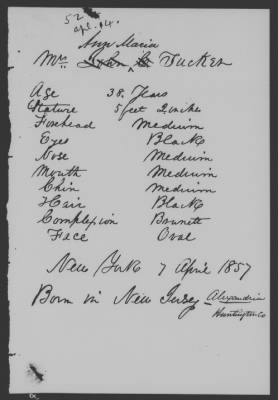 52
apl. 14.
Ann Maria
Mrs John C Tucker
Age 38. Years
Stature 5 feet 2 inches
Forehead Medium
Eyes Black
Nose Medium
Mouth Medium
Chin Medium
Hair Black
Complexion Brunett
Face Oval
New York 7 April 1857
Born in New Jersey - Alexandria
Huntington Co